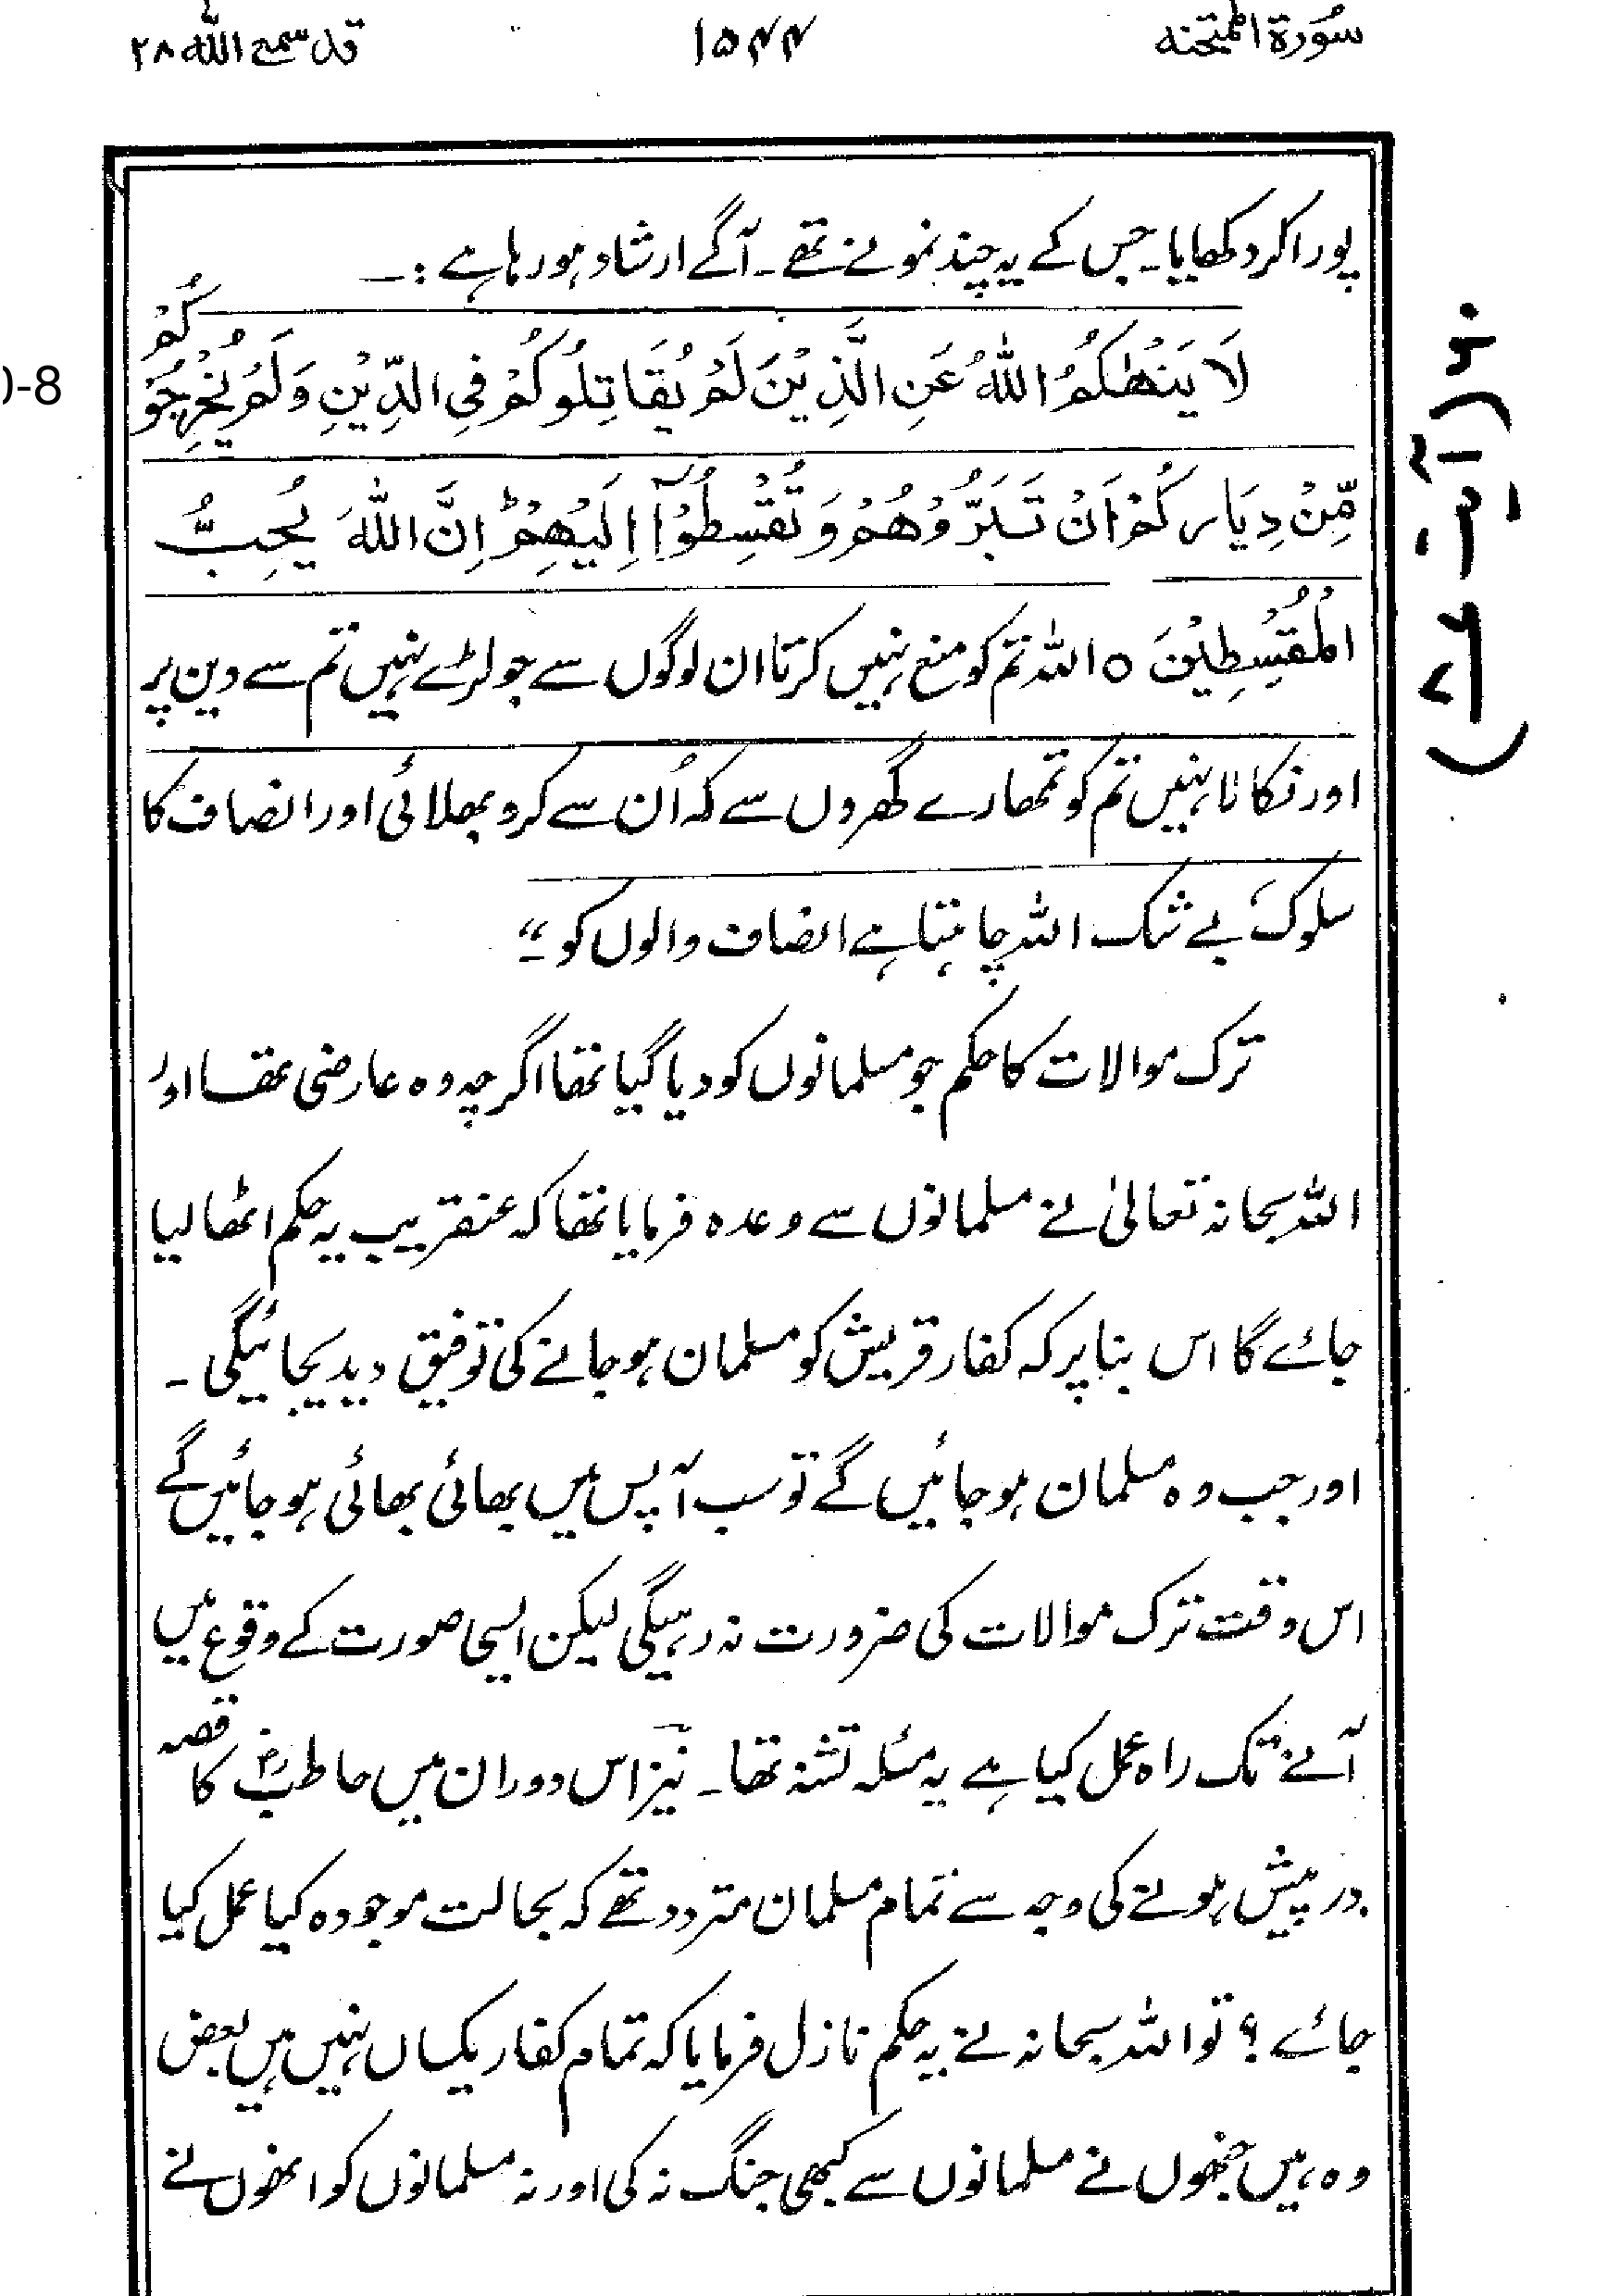 سُورة الممتحنه ۱۵۴۴ قد سمع اللہ ۲۸
پورا کر دکھایا۔ جس کے یہ چند نمونے تھے۔ آگے ارشاد ہو رہا ہے :۔
لَا یَنْھٰکُمُ اللّٰہُ عَنِ الَّذِیْنَ لَمْ یُقَاتِلُوْکُمْ فِی الدِّیْنِ وَلَمْ یُخْرِجُوْکُمْ
مِّنْ دِیَارِکُمْ اَنْ تَبَرُّوْھُمْ وَ تُقْسِطُوْٓا اِلَیْھِمْ ؕ اِنَّ اللّٰہَ یُحِبُّ
الْمُقْسِطِیْنَ ○ اللہ تم کو منع نہیں کرتا ان لوگوں سے جو لڑے نہیں تم سے دین پر
اور نکالا نہیں تم کو تمھارے گھروں سے کہ اُن سے کرو بھلائی اور انصاف کا
سلوک، بے شک اللہ چاہتا ہے انصاف والوں کو۔“
ترک موالات کا حکم جو مسلمانوں کو دیا گیا تھا اگرچہ وہ عارضی تھا اور
اللہ سبحانہ تعالیٰ نے مسلمانوں سے وعدہ فرمایا تھا کہ عنقریب یہ حکم اٹھا لیا
جائے گا اس بنا پر کہ کفار قریش کو مسلمان ہو جانے کی توفیق دیدیجائیگی ۔
اور جب وہ مسلمان ہو جائیں گے تو سب آپس میں بھائی بھائی ہو جائیں گے
اس وقت ترک موالات کی ضرورت نہ رہیگی لیکن ایسی صورت کے وقوع میں
آنے تک راہ عمل کیا ہے یہ مسئلہ تشنہ تھا۔ نیز اس دوران میں حاطبؓ کا قصہ
در پیش ہونے کی وجہ سے تمام مسلمان متردد تھے کہ بحالت موجودہ کیا عمل کیا
جائے ؟ تو اللہ سبحانہ نے یہ حکم نازل فرمایا کہ تمام کفار یکساں نہیں ہیں بعض
وہ ہیں جنھوں نے مسلمانوں سے کبھی جنگ نہ کی اور نہ مسلمانوں کو انھوں نے